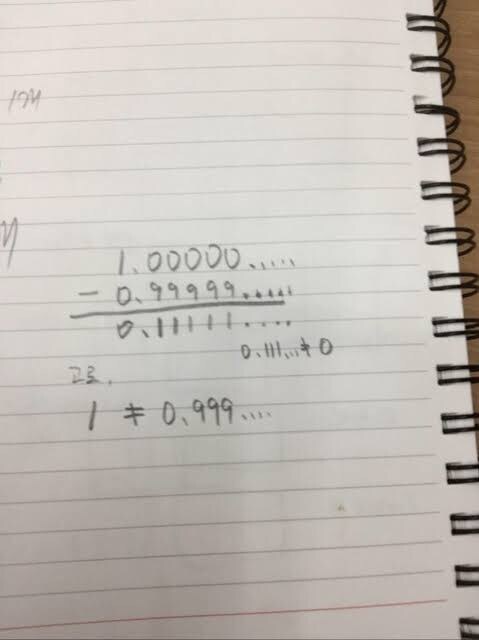 1.00000.....
- 0.99999.....
0.11111....
0.111..≠0
고로.
1 ≠ 0.999....